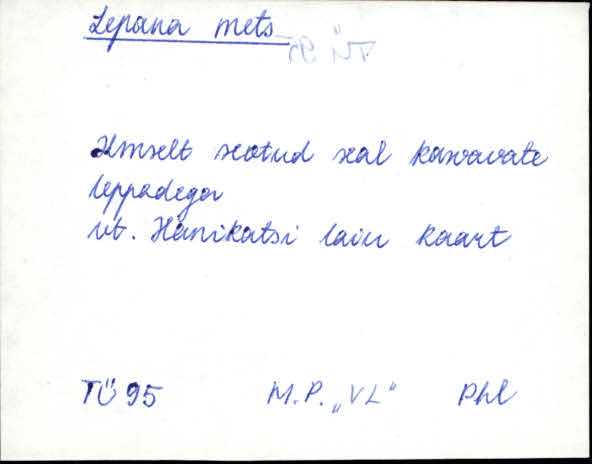 Lepana mets
TÜ 95
Ilmselt seotud seal kasvavate
leppadega
vt. Hanikatsi laiu kaart
TÜ 95 M.P. „VL" Phl